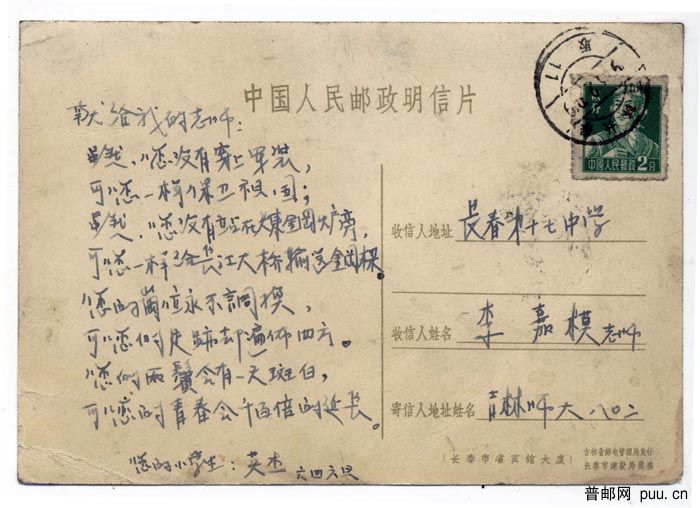 中国人民邮政明信片
中国人民邮政 2分
献给我的老师:
虽然,您没有穿上军装,
可您一样保卫祖国;
虽然,您没有站在炼钢炉旁,
可您一样给长江大桥输送钢梁。
您的崗位永不調換,
可您的足跡却遍佈四方。
您的两鬢会有一天斑白,
可您的青春会千百倍的延长。
您的小学生:英杰 六四六
收信人地址 長春第十七中学
收信人姓名 李嘉模老师
寄信人地址姓名 吉林师大八〇二
(长春市省宾馆大厦)
吉林省邮电管理局发行
普邮网 puu.cn